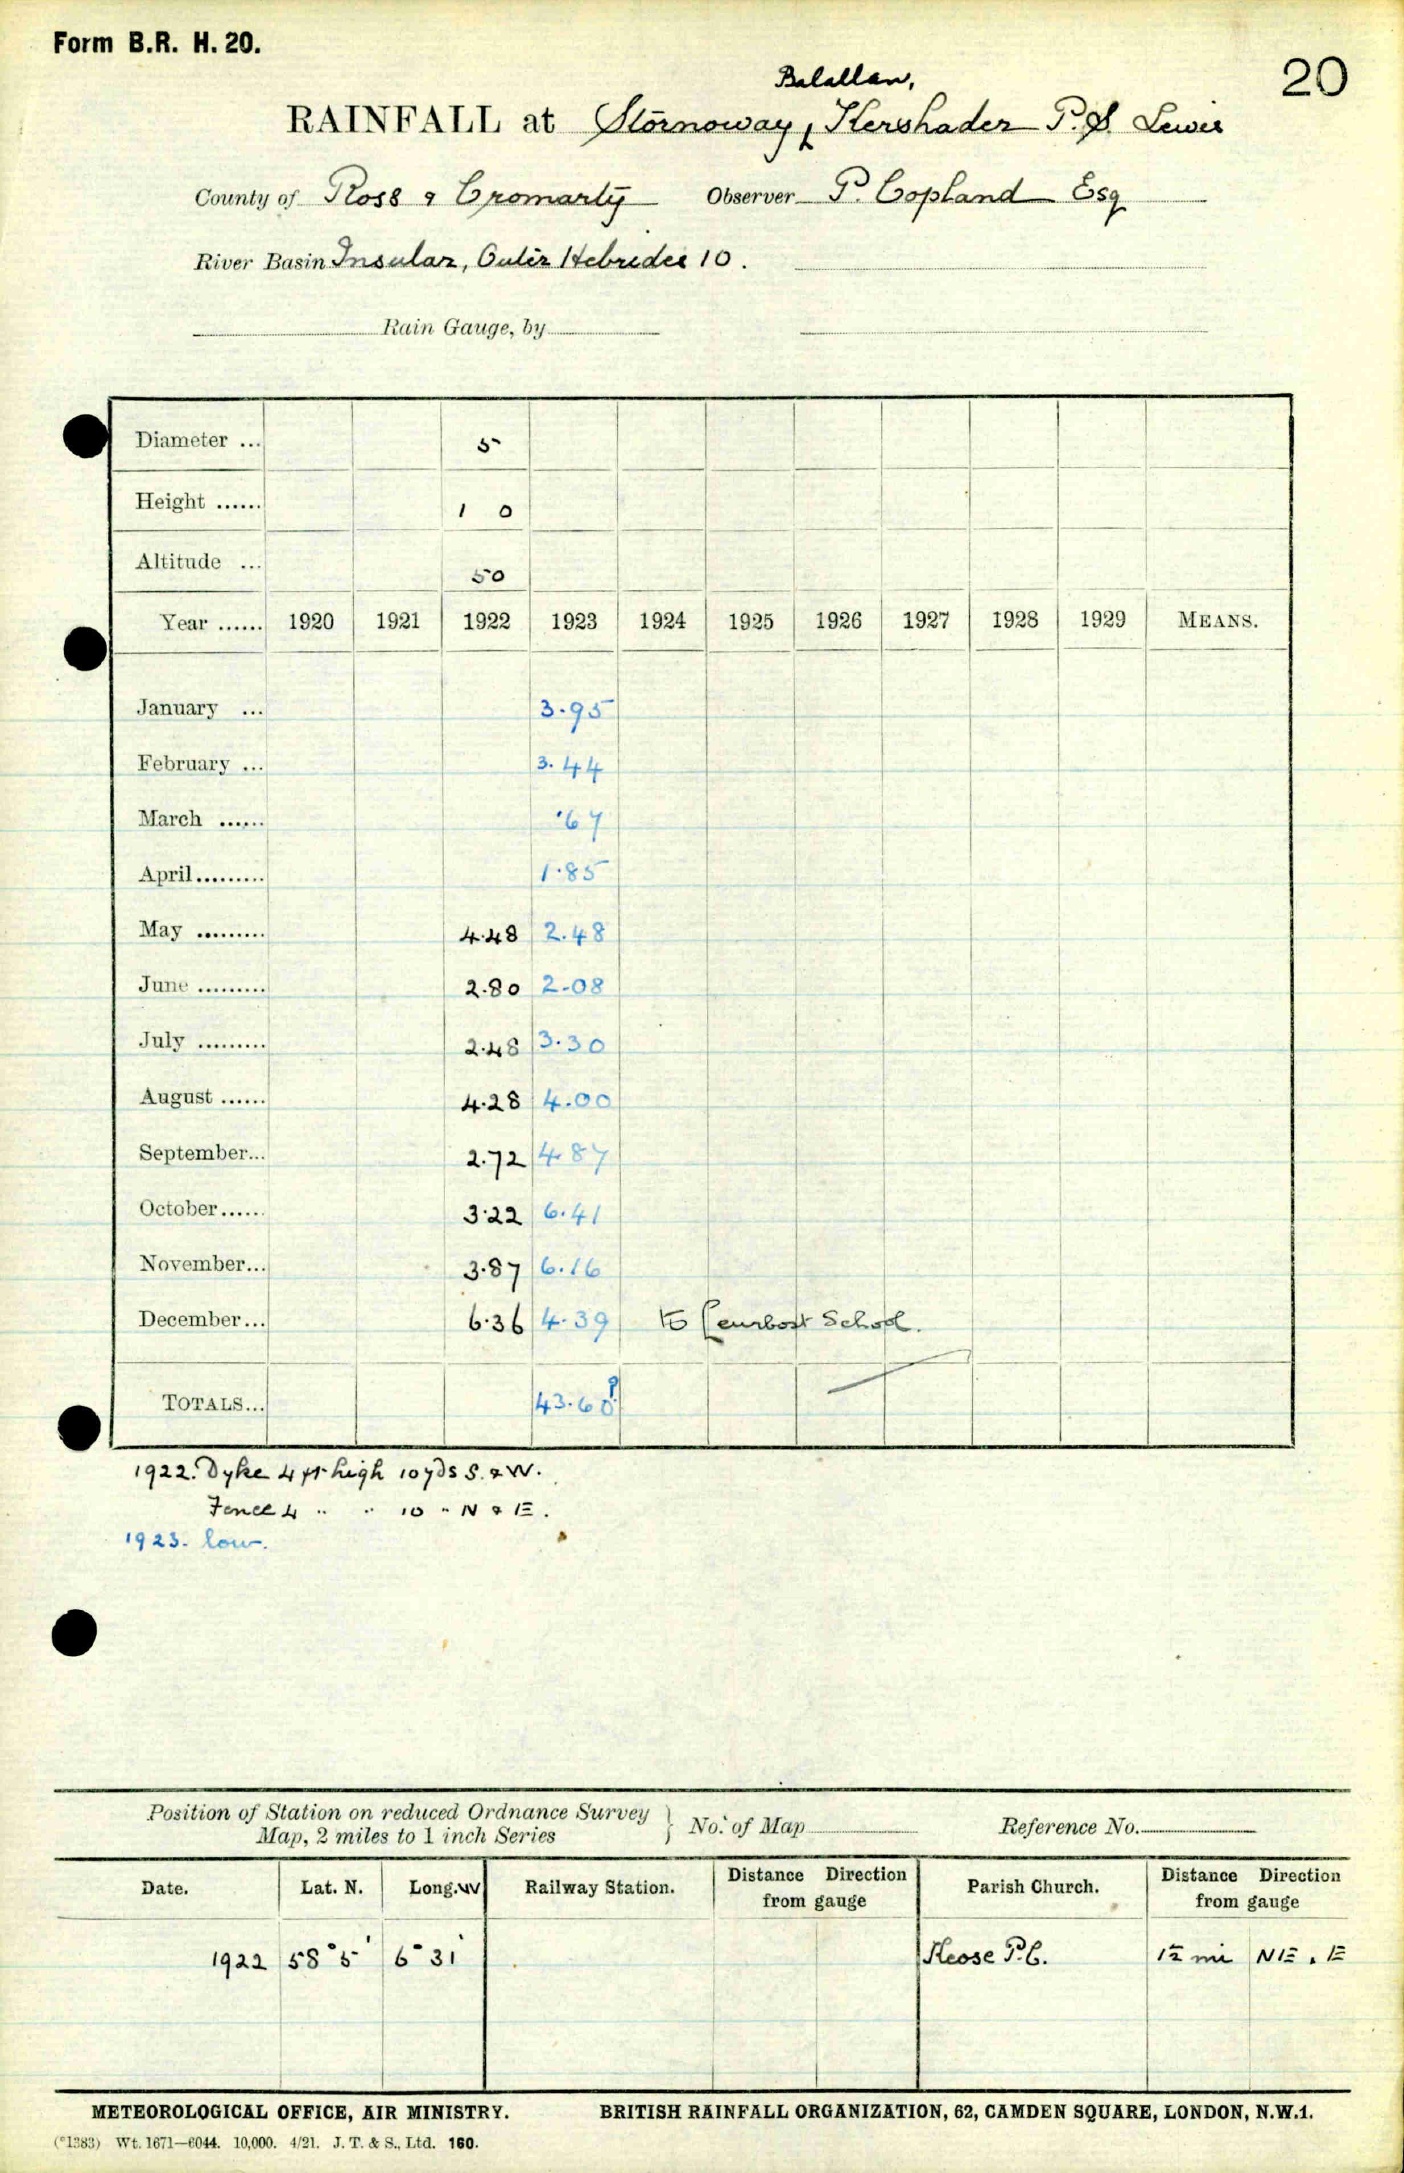 Form B.R. H. 20.
20
Balallan,
RAINFALL at Stornoway, Kershader P.S. Lewis
County of Ross & Cromarty Observer P. Copland Esq
River Basin Insular, Outer Hebrides 10.
Rain Gauge, by
Diameter ... 5
Height ...... 1 0
Altitude ... 50
Year ...... 1920 1921 1922 1923 1924 1925 1926 1927 1928 1929 MEANS.
January ... 3.95
February ... 3.44
March ...... .67
April......... 1.85
May ......... 4.48 2.48
June ......... 2.80 2.08
July ......... 2.48 3.30
August ...... 4.28 4.00
September... 2.72 4.87
October...... 3.22 6.41
November... 3.87 6.16
December... 6.36 4.39 to Leurbost School.
TOTALS... 43.60?
1922. Dyke 4 ft high 10 yds S. & W.
Fence 4 " " 10 " N & E.
1923. low.
Position of Station on reduced Ordnance Survey
Map, 2 miles to 1 inch Series } No. of Map Reference No.
Date. Lat. N. Long. W Railway Station. Distance Direction from gauge Parish Church. Distance Direction from gauge
1922 58° 5' 6° 31' Keose P.C. 1½ mi NE. E
METEOROLOGICAL OFFICE, AIR MINISTRY. BRITISH RAINFALL ORGANIZATION, 62, CAMDEN SQUARE, LONDON, N.W.1.
(*1383) Wt. 1671—6044. 10,000. 4/21. J. T. & S., Ltd. 160.